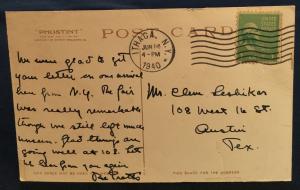 "PHOSTINT"
POST CARD
ITHACA, N.Y.
JUN 14
4-PM
1940
We were glad to get
your letter on our arrival
here from N.Y. The fair
was really remarkable
though we still left much
unseen. Glad things are
going well at 108.
you again
Mr. Clem
108 West 16 St.
Austin
Tex.
THIS SPACE FOR THE ADDRESS